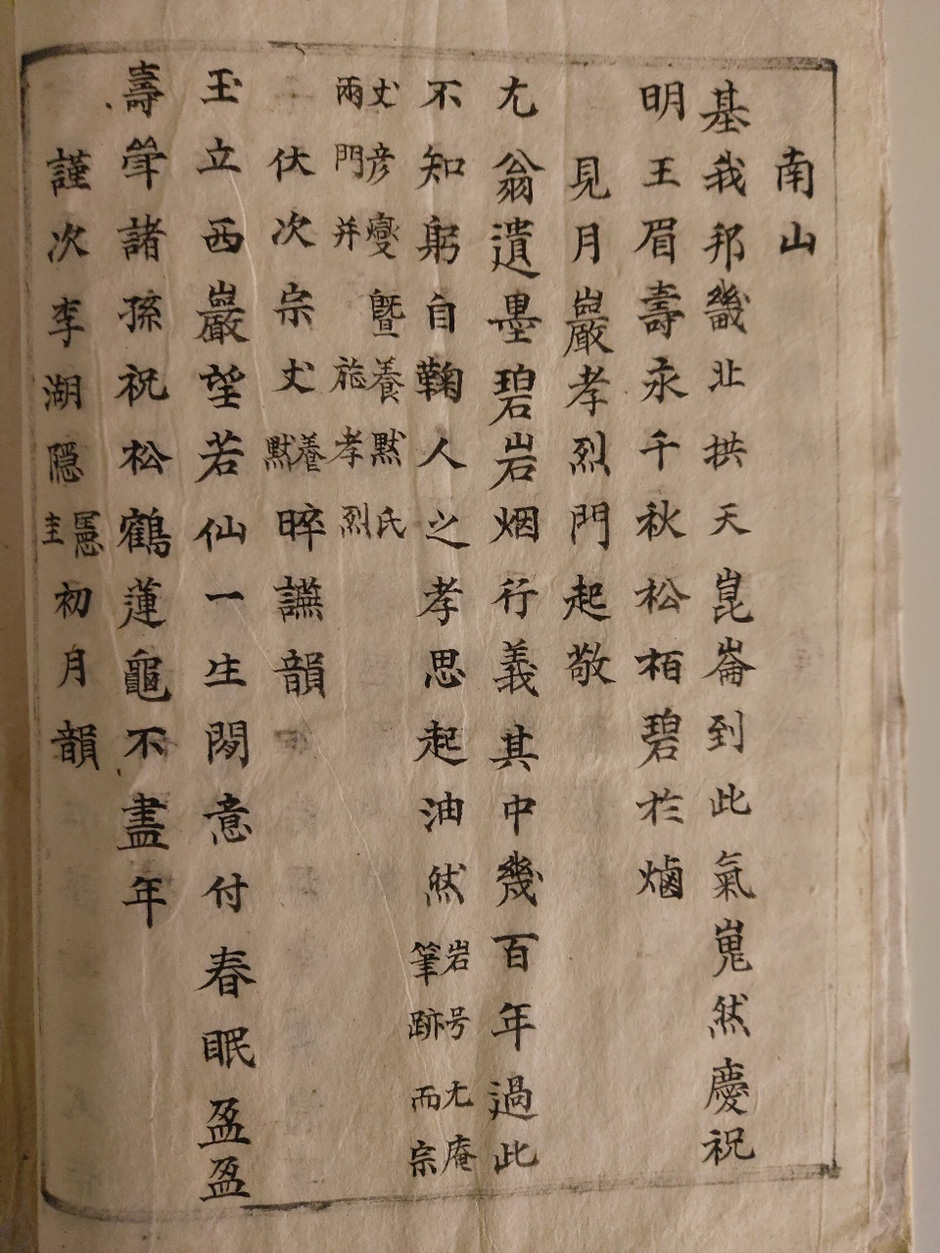 南山
基我邦畿北拱天崑崙到此氣嵬然慶祝
明王眉壽永千秋松栢碧於
見月巖孝烈門起敬
尤翁遺墨碧岩烟行義其中幾百年過此
不知躬自鞠人之孝思起油然岩号尤庵筆跡而宗
丈彦燮曁養默氏兩門并旌孝烈
伏次宗丈養默晬讌韻
玉立西巖望若仙一生閑意付春眠盈盈
壽斝諸孫祝松鶴蓮龜不盡年
謹次李湖隱憲圭初月韻